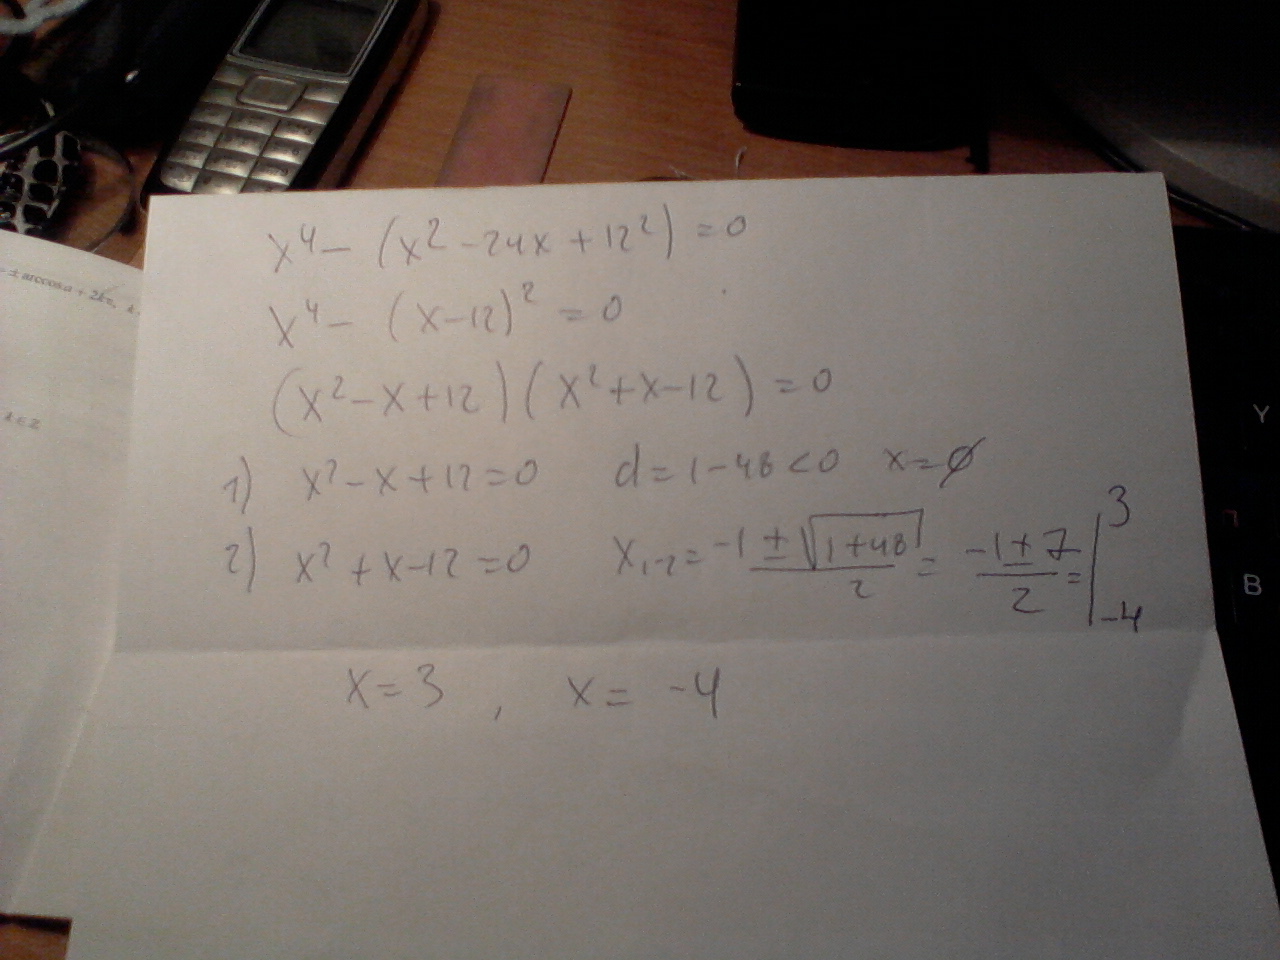 x⁴ - (x² - 24x + 12²) = 0
x⁴ - (x-12)² = 0
(x² - x + 12)(x² + x - 12) = 0
1) x² - x + 12 = 0 d = 1 - 48 < 0 x = ∅
2) x² + x - 12 = 0 x₁₋₂ = (-1 ± √(1+48))/2 = (-1 ± 7)/2 = | 3 -4
x = 3 , x = -4
= ± arccos a + 2kπ,
Y
B